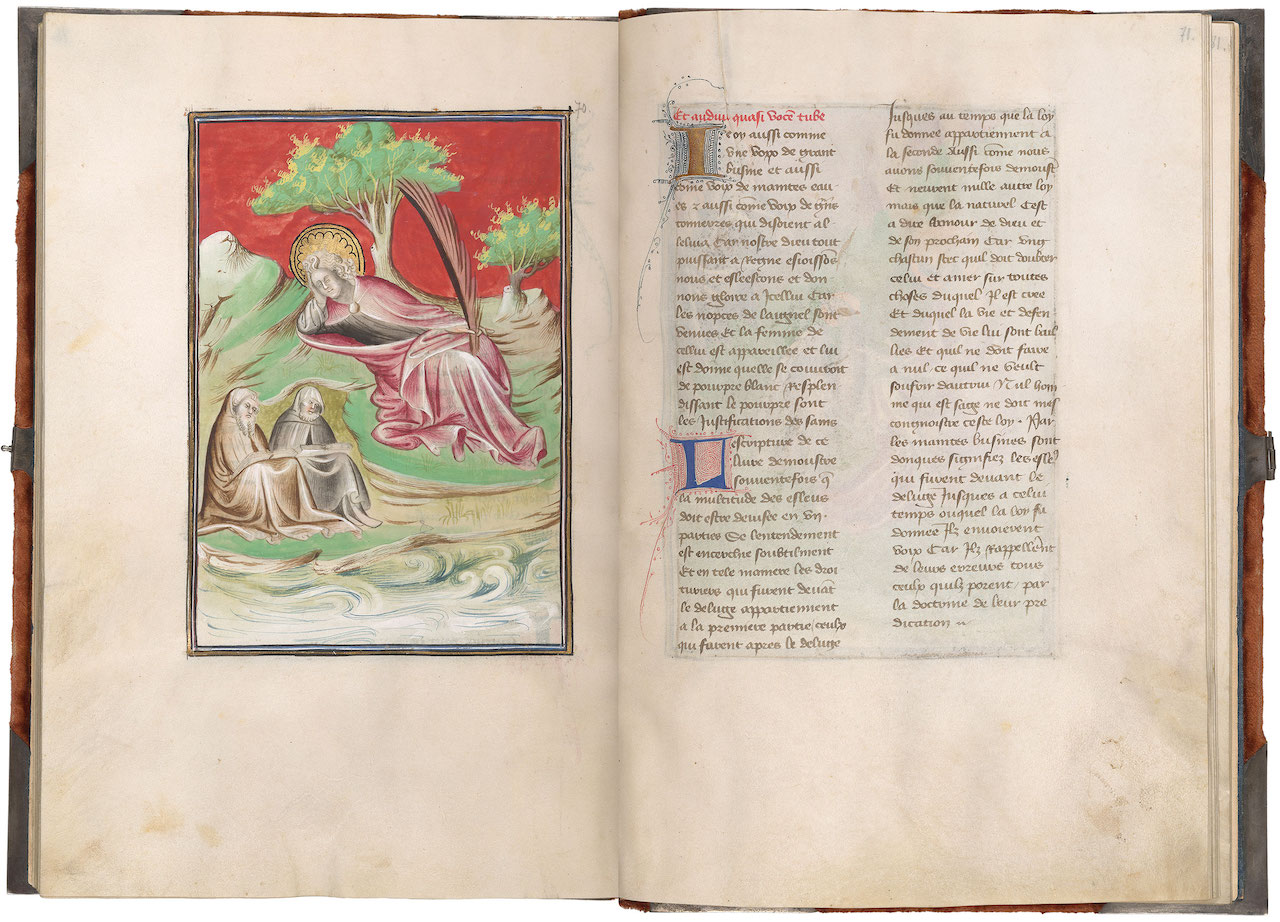 70
71.
Et audivi quasi vocē tube
Ie oy aussi comme
vne voix de grant
busine et aussi
cōme voix de maintes eau
es ⁊ aussi cōme voix de grās
tonneyres qui disoient al
leluia Car nostre dieu tout
puissant a Regne esioissōs
nous et esleescons et don
nons gloire a Icellui Car
les nopces de laignel sont
venues Et la femme de
cellui est appareillee et lui
est donne quelle se couuroit
de pourpre blanc Resplen
dissant le pourpre sont
les Justifications des sains
Lescripture de ce
liure demoustre
souuentefois q̄
la multitude des esleus
doit estre deuisee en vij.
parties Se lentendement
est encerchie soubtilment
Et en tele maniere les droi
turiers qui furent deuāt
le deluge appartiennent
a la premiere partie / ceulx
qui furent apres le deluge
Jusques au temps que la loy
fu donnee appartiennent a
la seconde Aussi cōme nous
auons souuentefois demoustr
Et neurent nulle autre loy
mais que la naturel Cest
a dire Amour de dieu et
de son prochain Car vng
chascun scet quil doit doubter
celui et amer sur toutes
choses duquel Il est cree
Et duquel la vie et defen
dement de vie lui sont bail
lies Et quil ne doit faire
a nul ce quil ne veult
soufrir dautrui Nul hom
me qui est sage ne doit mes
congnoistre ceste loy. Par
les maintes busines sont
donques signifiez les esleꝰ
qui furent deuant le
deluge Jusques a celui
temps ouquel la loy fu
donnee Ilz enuoierent
voix Car Ilz Rappellerēt
de leurs erreurs tous
ceulx quilz porent / par
la doctrine de leur pre
dication